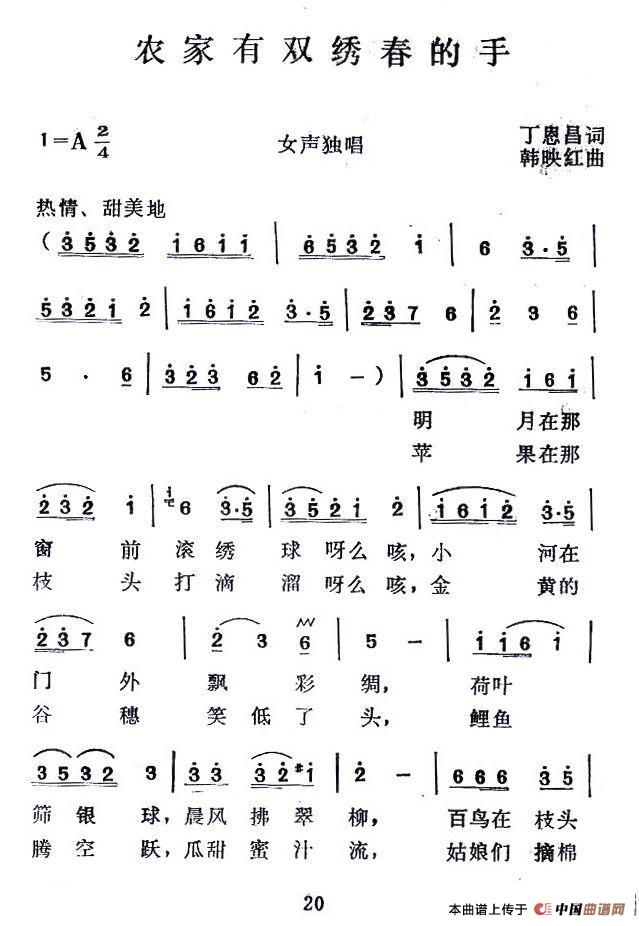 农家有双绣春的手
1=A 2/4
女声独唱
丁恩昌词
韩映红曲
热情、甜美地
( 3 5 3 2 1 6 1 1 | 6 5 3 2 1 | 6 3·5 |
5 3 2 1 2 | 1 6 1 2 3·5 | 2 3 7 6 | 2 3 6 |
5 · 6 | 3 2 3 6 2 | 1 - ) | 3 5 3 2 1 6 1 |
明 月在那
苹 果在那
2 3 2 1 | 1 6 3·5 | 3 5 2 1 2 | 1 6 1 2 3·5 |
窗 前 滚 绣 球 呀么 咳, 小 河在
枝 头 打 滴 溜 呀么 咳, 金 黄的
2 3 7 6 | 2 3 6 | 5 - | 1 1 6 1 |
门 外 飘 彩 绸, 荷叶
谷 穗 笑 低 了 头, 鲤鱼
3 5 3 2 3 | 3 3 3 2 #1 | 2 - | 6 6 6 3 3 |
筛 银 球, 晨风 拂 翠 柳, 百鸟在 枝头
腾 空 跃, 瓜甜 蜜 汁 流, 姑娘们 摘棉
20
本曲谱上传于 中国曲谱网